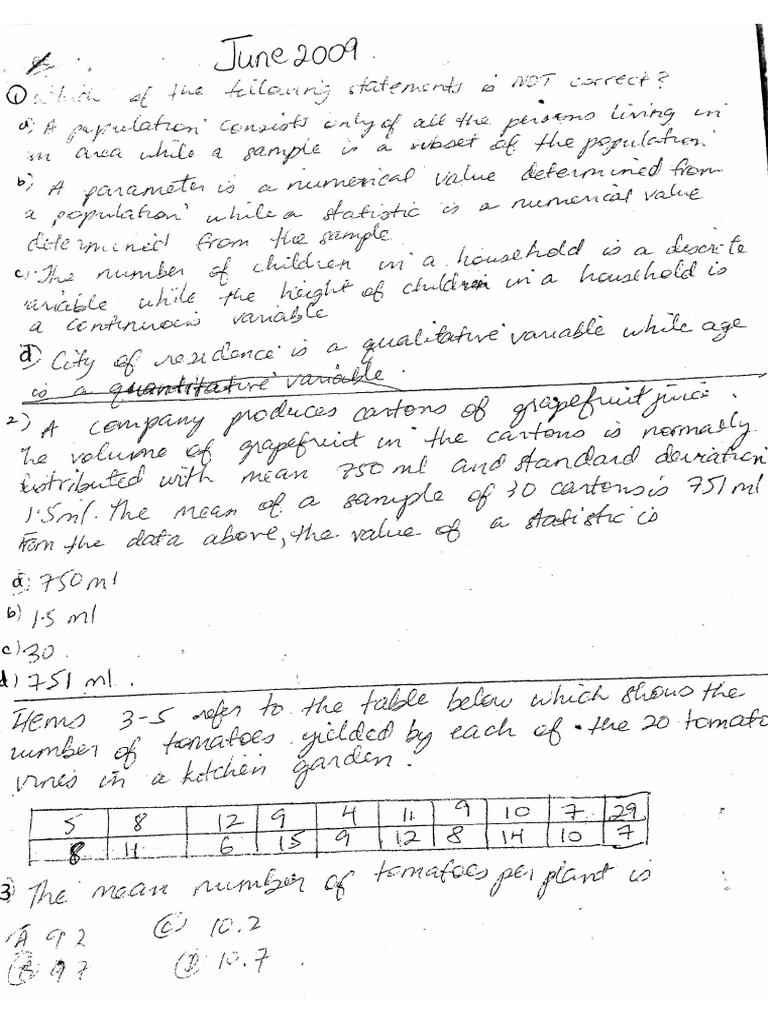 June 2009
① Which of the following statements is NOT correct?
a) A population consists only of all the persons living in
an area while a sample is a subset of the population
b) A parameter is a numerical value determined from
a population while a statistic is a numerical value
determined from the sample
c) The number of children in a household is a discrete
variable while the height of children in a household is
a continuous variable
d) City of residence is a qualitative variable while age
is a quantitative variable.
2) A company produces cartons of grapefruit juice.
The volume of grapefruit in the cartons is normally
distributed with mean 750 ml and standard deviation
1.5ml. The mean of a sample of 30 cartons is 751 ml
From the data above, the value of a statistic is
a) 750 ml
b) 1.5 ml
c) 30
d) 751 ml.
Items 3-5 refer to the table below which shows the
number of tomatoes yielded by each of the 20 tomato
vines in a kitchen garden.
5 8 12 9 4 11 9 10 7 29
8 11 6 15 9 12 8 14 10 7
3) The mean number of tomatoes per plant is
A 9.2 (C) 10.2
(B) 9.7 (D) 10.7